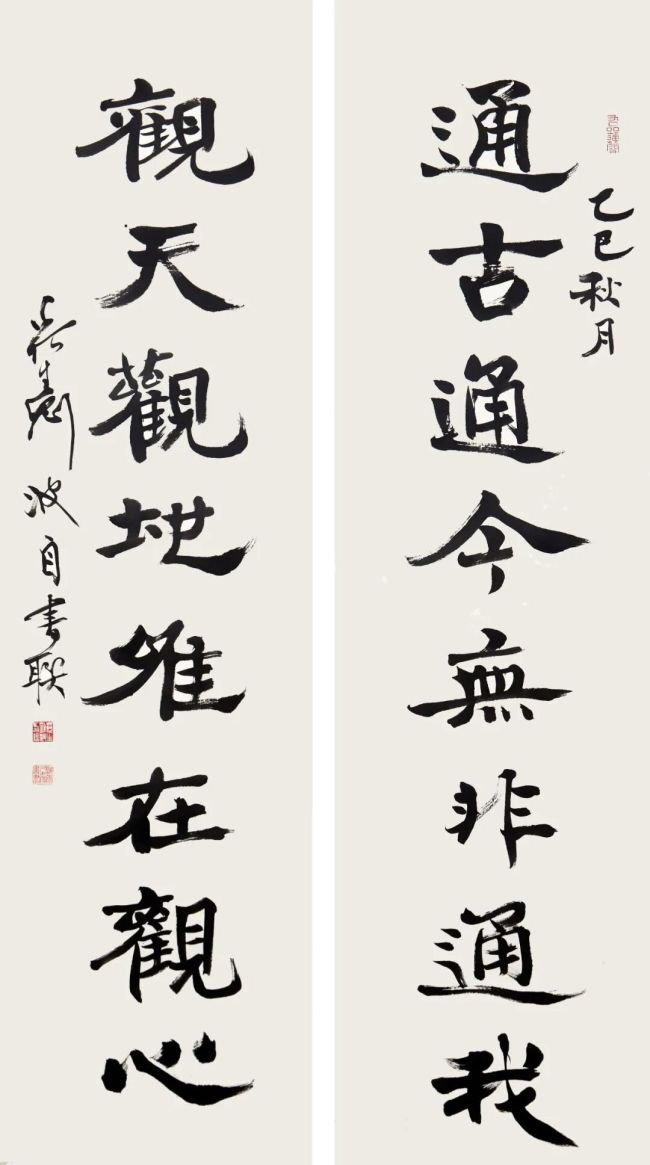 乙巳秋月
通古通今無非通我
觀天觀地唯在觀心
波自書聯